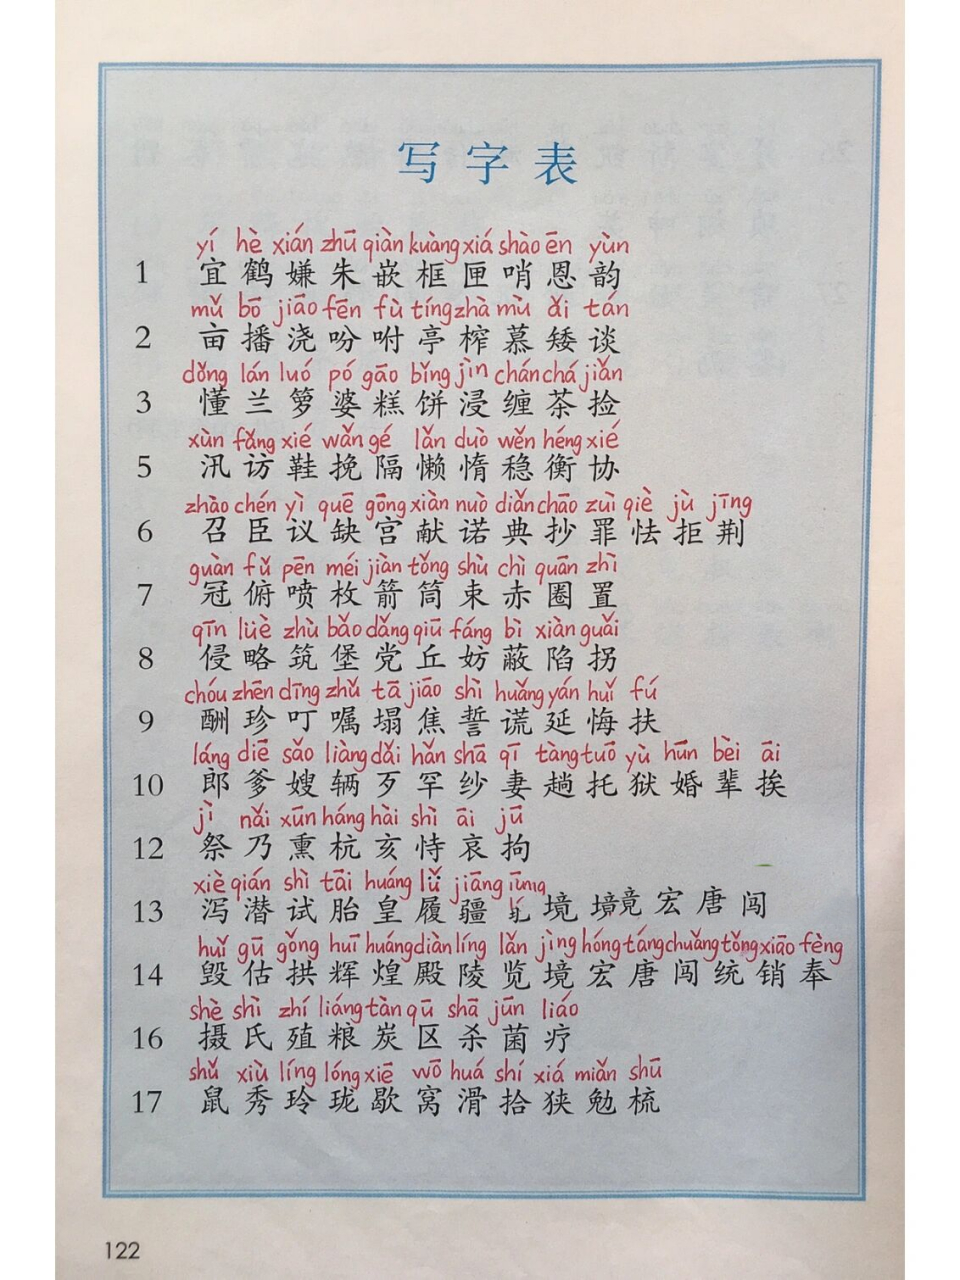 写字表
yí hè xián zhū qiàn kuàng xiá shào ēn yùn
1 宜 鹤 嫌 朱 嵌 框 匣 哨 恩 韵
mǔ bō jiāo fēn fù tíng zhà mù ǎi tán
2 亩 播 浇 吩 咐 亭 榨 慕 矮 谈
dǒng lán luó pó gāo bǐng jìn chán chá jiǎn
3 懂 兰 箩 婆 糕 饼 浸 缠 茶 捡
xùn fǎng xié wǎn gé lǎn duò wěn héng xié
5 汛 访 鞋 挽 隔 懒 惰 稳 衡 协
zhào chén yì quē gōng xiàn nuò diǎn chāo zuì qiè jù jīng
6 召 臣 议 缺 宫 献 诺 典 抄 罪 怯 拒 荆
guàn fǔ pēn méi jiàn tǒng shù chì quān zhì
7 冠 俯 喷 枚 箭 筒 束 赤 圈 置
qīn lüè zhù bǎo dǎng qiū fáng bì xiàn guǎi
8 侵 略 筑 堡 党 丘 妨 蔽 陷 拐
chóu zhēn dīng zhǔ tā jiāo shì huǎng yán huǐ fú
9 酬 珍 叮 嘱 塌 焦 誓 谎 延 悔 扶
láng diē sǎo liàng dǎi hǎn shā qī tàng tuō yù hūn bèi āi
10 郎 爹 嫂 辆 歹 罕 纱 妻 趟 托 狱 婚 辈 挨
jì nǎi xūn háng hài shì āi jū
12 祭 乃 熏 杭 亥 恃 哀 拘
xiè qián shì tāi huáng lǚ jiāng
13 泻 潜 试 胎 皇 履 疆 境 境竟 宏 唐 闯
huǐ gū gǒng huī huáng diàn líng lǎn jìng hóng táng chuǎng tǒng xiāo fèng
14 毁 估 拱 辉 煌 殿 陵 览 境 宏 唐 闯 统 销 奉
shè shì zhí liáng tàn qū shā jūn liáo
16 摄 氏 殖 粮 炭 区 杀 菌 疗
shǔ xiù líng lóng xiē wō huá shí xiá miǎn shū
17 鼠 秀 玲 珑 歇 窝 滑 拾 狭 勉 梳
122